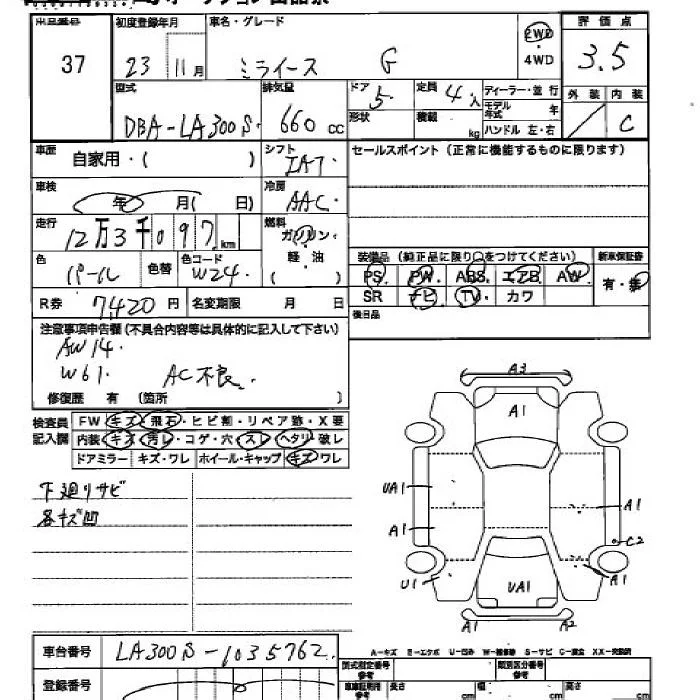 出品番号 初度登録年月 車名・グレード 評価点
37 23 11月 ミライース G 2WD 3.5
4WD
型式 排気量 ドア 定員 ディーラー・並行 外装 内装
DBA-LA300S 660cc 5 4人 モデル年式 年
形状 積載 kg ハンドル 左・右 C
車歴 自家用・( ) シフト IAT セールスポイント(正常に機能するものに限ります)
車検 年 月( 日) 冷房 AAC
走行 12万3千097km 燃料 ガソリン・軽油( ) 装備品(純正品に限り○をつけてください) 新車保証書
色 パール 色替 色コード W24 PS PW ABS エアB AW 有・無
R券 7,420円 名変期限 月 日 SR ナビ TV カワ
後日品
注意事項申告欄(不具合内容等は具体的に記入して下さい)
AW14.
W61. AC不良.
修復歴 有 〔箇所 〕
検査員記入欄 FW キズ・飛石・ヒビ割・リペア跡・X要
内装 キズ・汚レ・コゲ・穴・スレ・ヘタリ・破レ
ドアミラー キズ・ワレ ホイール・キャップ キズ・ワレ
下廻りサビ
各キズ凹
A3
A1
UA1
A1
A1
C2
U1
A1
UA1
A1 A2
A-キズ E-エクボ U-凹み W-補修跡 S-サビ C-腐食 XX-交換済
車台番号 LA300S-1035762
登録番号
型式指定番号 参考 類別区分番号 参考
車車証明用 参考 長さ cm 幅 cm 高さ cm